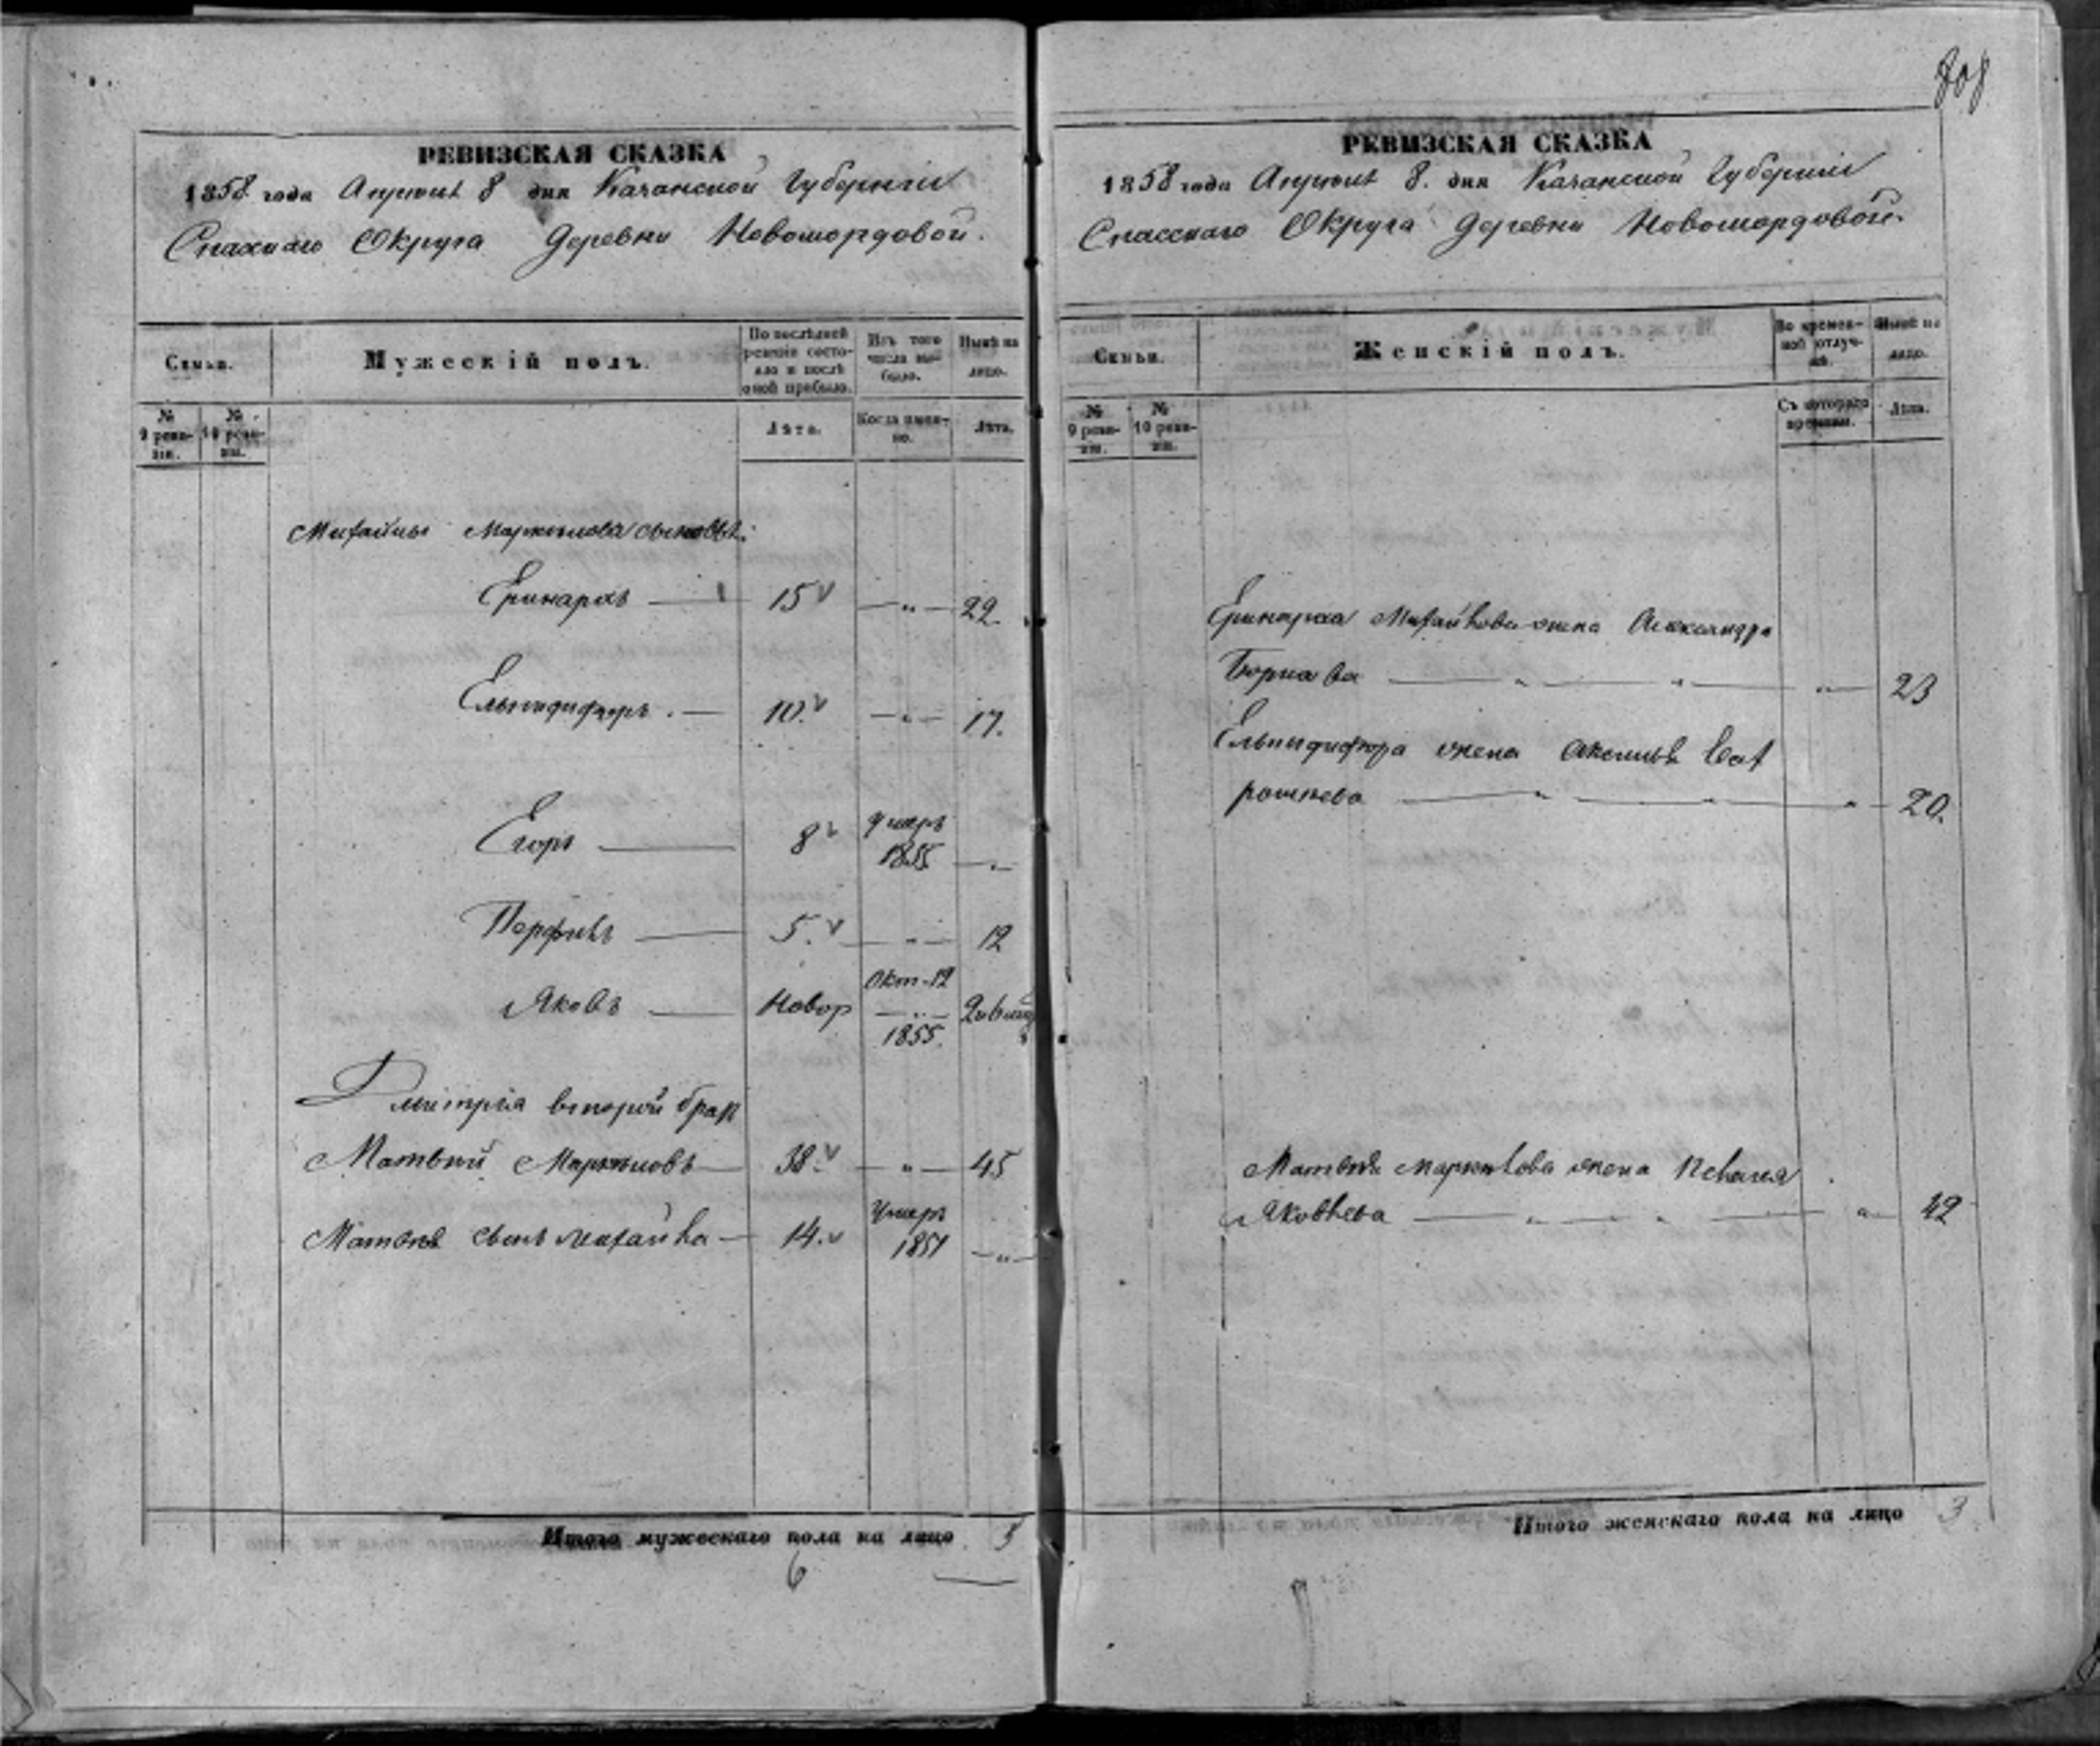 808
РЕВИЗСКАЯ СКАЗКА
1858 года Апреля 8 дня Казанской Губерніи
Спаскаго Округа Деревни Новомордовой.
Семьи.
Мужескій полъ.
По послѣдней ревизіи состояло и послѣ оной прибыло.
Изъ того числа выбыло.
Нынѣ на лицо.
№ 9 ревизіи.
№ 10 ревизіи.
Лѣта.
Когда именно.
Лѣта.
Михайлы Маркелова сыновья:
Еринархъ 15 — „ — 22.
Ельпидифоръ. 10. — „ — 17.
Егоръ 8 умеръ 1855 — „
Порфилъ 5. — „ — 12
Яковъ Новор Окт. 12 1855.
Дмитрія второй брат
Матвей Маркеловъ 38. — „ — 45
Матвея сынъ Михайла 14. Умеръ 1851 — „ —
Итого мужескаго пола на лицо 5
6
РЕВИЗСКАЯ СКАЗКА
1858 года Апреля 8. дня Казанской Губерніи
Спасскаго Округа Деревни Новомордовой.
Семьи.
Женскій полъ.
Во временной отлучкѣ.
Нынѣ на лицо.
№ 9 ревизіи.
№ 10 ревизіи.
Съ котораго времени.
Лѣта.
Еринарха Михайлова жена Александра
23
Ельпидифора жена
20.
Матвея Маркелова жена
Яковлева — „ — „ — „ — 42
Итого женскаго пола на лицо 3